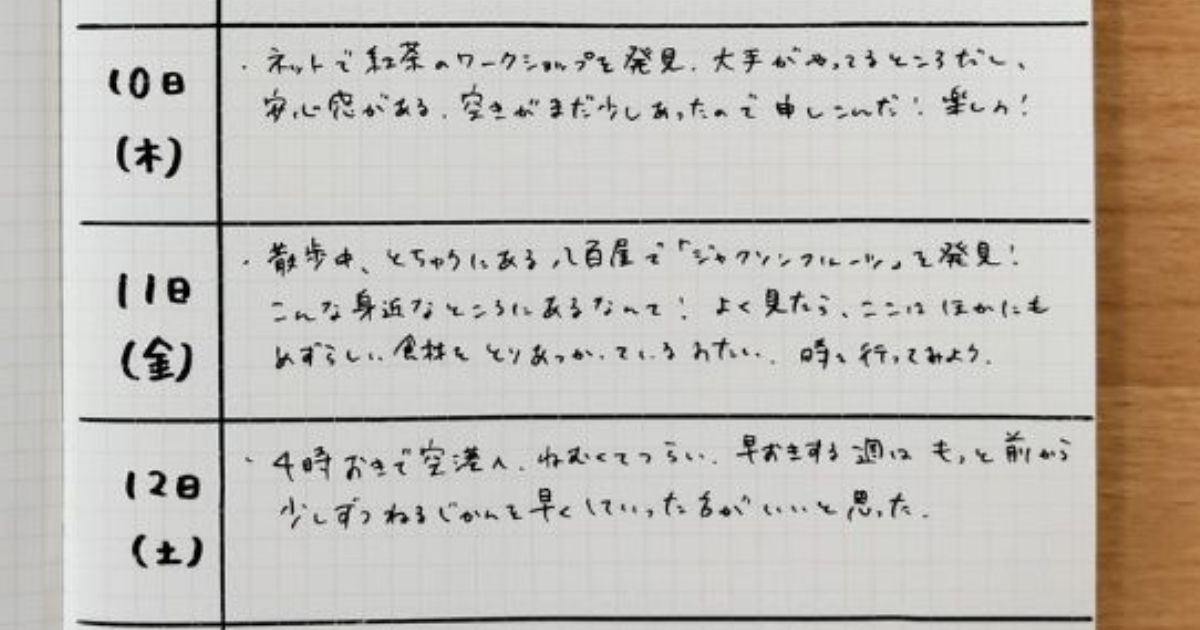 10日
(木)
・ネットで紅茶のワークショップを発見. 大手がやってるところだし、
安心感がある. 空きがまだ少しあったので申しこんだ! 楽しみ!
11日
(金)
・散歩中、とちゅうにある八百屋で「ジャクソンフルーツ」を発見!
こんな身近なところにあるなんて! よく見たら、ここはほかにも
めずらしい食材をとりあつかっているみたい. 時々行ってみよう.
12日
(土)
・4時おきで空港へ. ねむくてつらい. 早おきする週はもっと前から
少しずつねるじかんを早くしていった方がいいと思った.